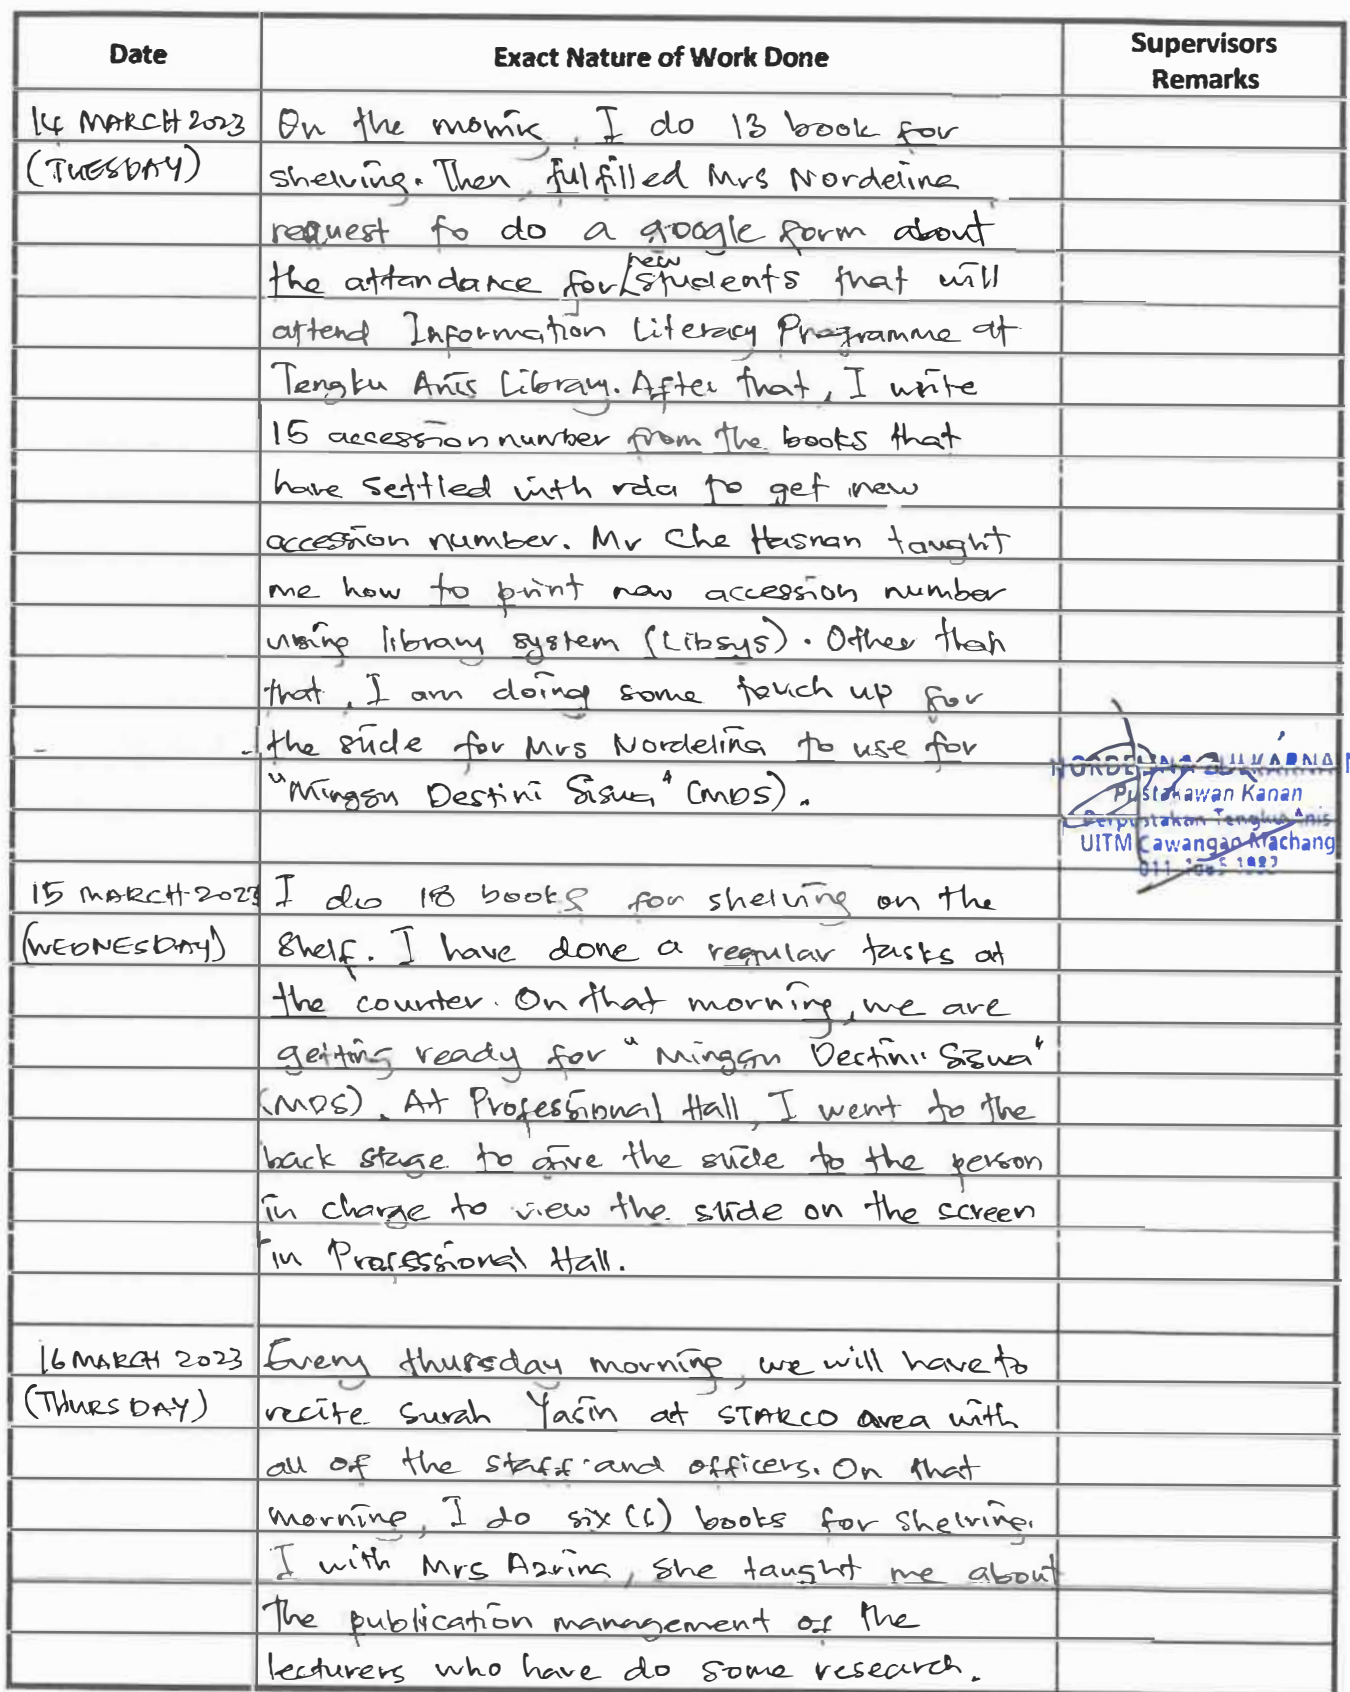 Date Exact Nature of Work Done Supervisors
Remarks
14 MARCH 2023 On the morning, I do 13 book for
(TUESDAY) shelving. Then, fulfilled Mrs Nordelina
request to do a google form about
the attandance for new students that will
attend Information Literacy Programme at
Tengku Anis Library. After that, I write
15 accession number from the books that
have settled with rda to get new
accession number. Mr Che Hasnan taught
me how to print new accession number
using library system (Libsys). Other than
that, I am doing some touch up for
the slide for Mrs Nordelina to use for
"Minggu Destini Siswa" (MDS).
Pustakawan Kanan
Perpustakan Tengku Anis
UITM Cawangan Machang
15 MARCH 2023 I do 18 books for shelving on the
(WEDNESDAY) shelf. I have done a regular tasks at
the counter. On that morning, we are
getting ready for "Minggu Destini Siswa"
(MDS). At Professional Hall, I went to the
back stage to give the slide to the person
in charge to view the slide on the screen
in Professional Hall.
16 MARCH 2023 Every thursday morning, we will have to
(THURSDAY) recite Surah Yasin at STARCO area with
all of the staff and officers. On that
morning, I do six (6) books for shelving.
I with Mrs Azrina, she taught me about
the publication management of the
lecturers who have do some research.